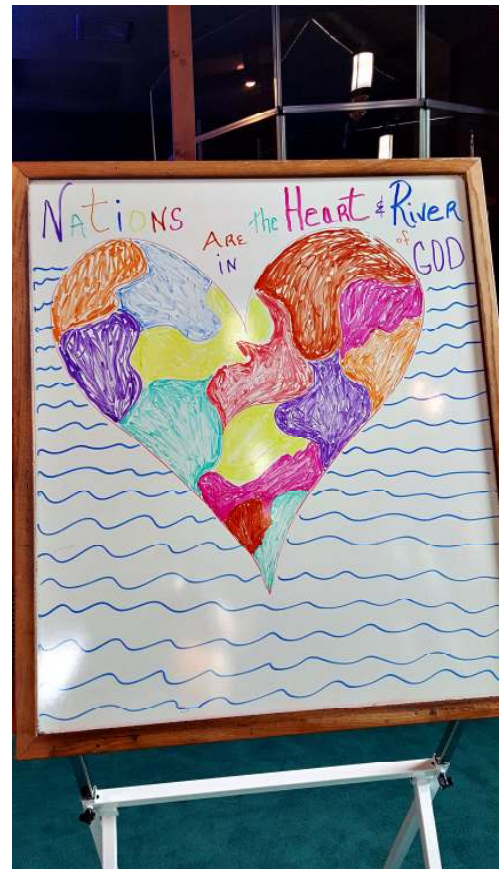 NAtiONS ARE the HeaRt & RiveR
IN of GOD